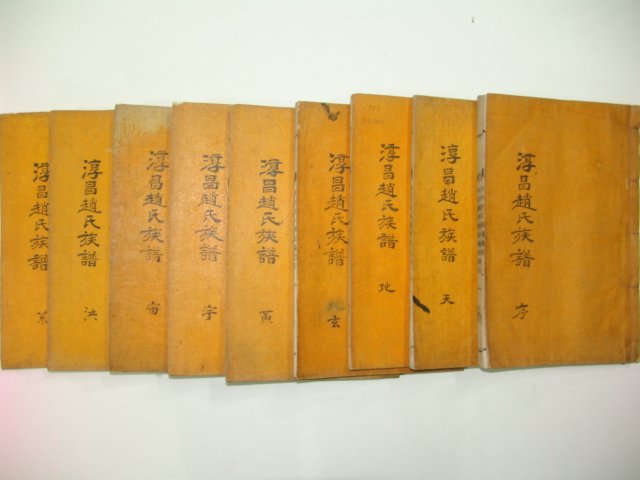 淳昌趙氏族譜
序
淳昌趙氏族譜
天
淳昌趙氏族譜
地
淳昌趙氏族譜
玄
淳昌趙氏族譜
黃
淳昌趙氏族譜
宇
淳昌趙氏族譜
宙
淳昌趙氏族譜
洪
淳昌趙氏族譜
荒